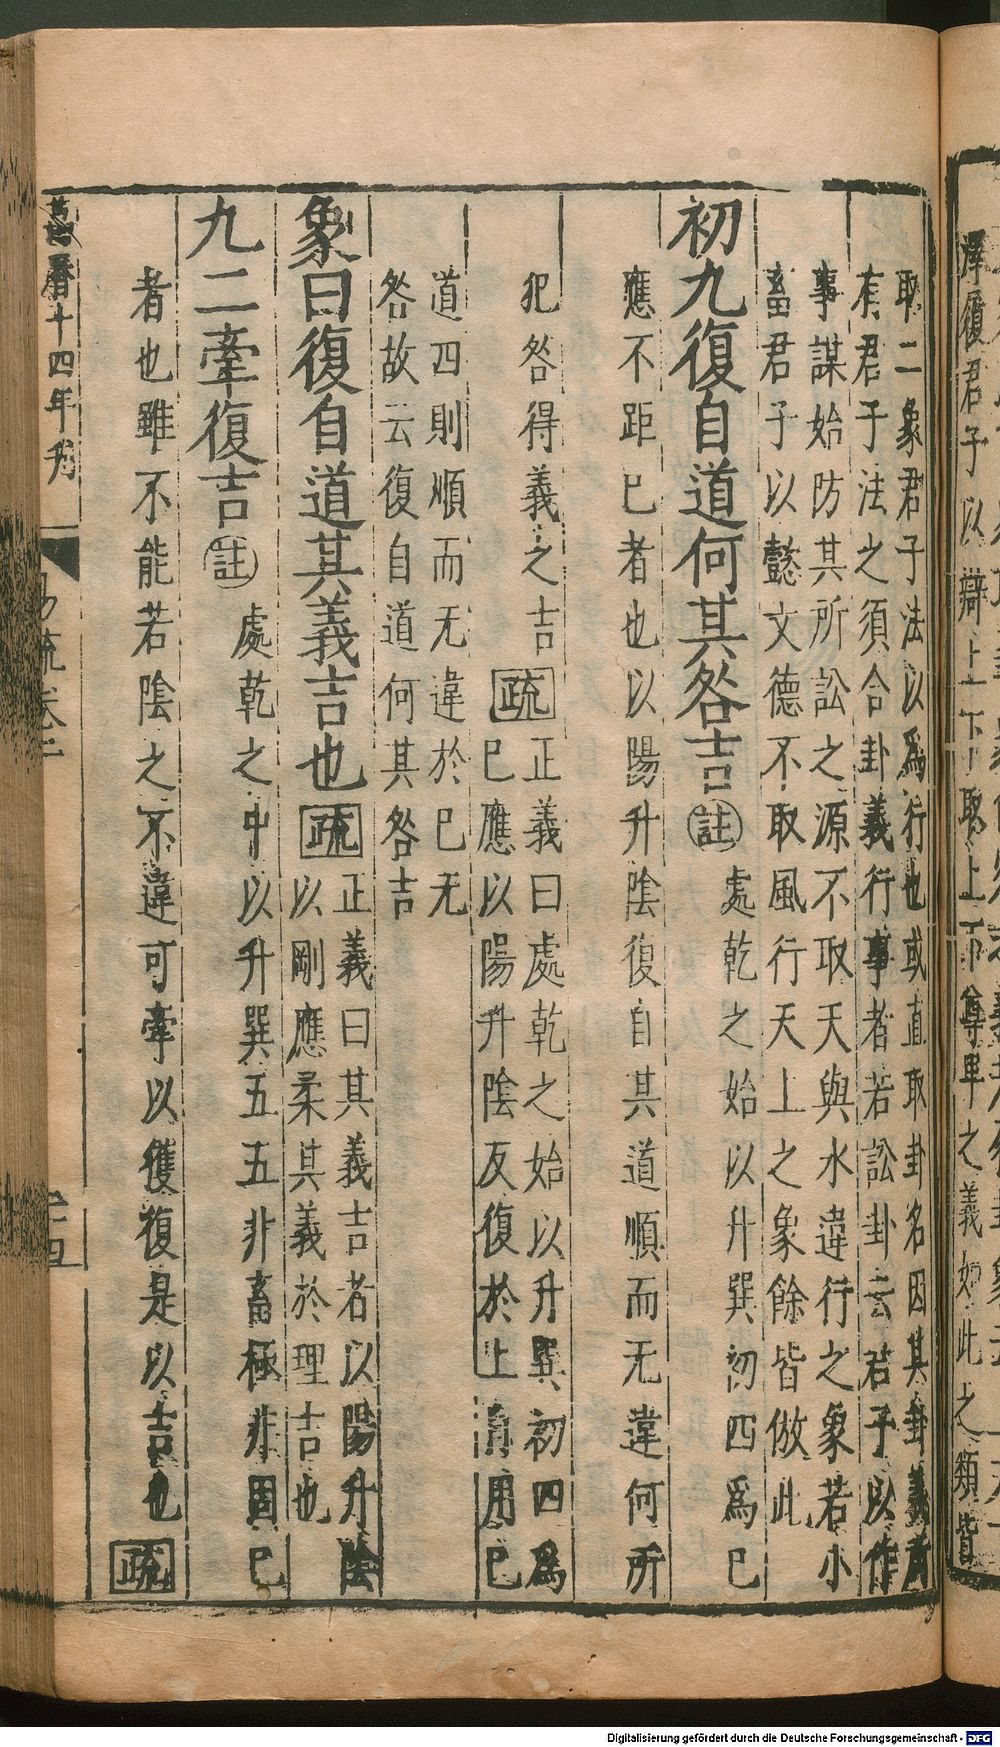 澤履君子以辯上下取上下尊卑之義如此之類皆
取二象君子法以爲行也或直取卦名因其卦義所
有君子法之須合卦義行事者若訟卦云君子以作
事謀始防其所訟之源不取天與水違行之象若小
畜君子以懿文德不取風行天上之象餘皆倣此
初九復自道何其咎吉註處乾之始以升巽初四爲已
應不距已者也以陽升陰復自其道順而无違何所
犯咎得義之吉疏正義曰處乾之始以升巽初四爲
已應以陽升陰反復於上用已
道四則順而无違於已无
咎故云復自道何其咎吉
象曰復自道其義吉也疏正義曰其義吉者以陽升陰
以剛應柔其義於理吉也
九二牽復吉註處乾之中以升巽五五非畜極非固已
者也雖不能若陰之不違可牽以獲復是以吉也疏
萬曆十四年刊
易疏卷二
Digitalisierung gefördert durch die Deutsche Forschungsgemeinschaft - DFG